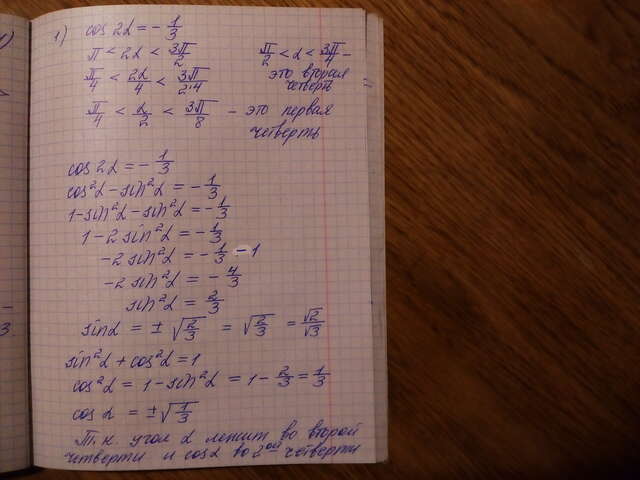 1) cos 2α = - 1/3
π < 2α < 3π/2
π/2 < α < 3π/4 -
это вторая
четверть
π/4 < 2α/4 < 3π/2·4
π/4 < α/2 < 3π/8 - это первая
четверть
cos 2α = - 1/3
cos²α - sin²α = - 1/3
1 - sin²α - sin²α = - 1/3
1 - 2 sin²α = - 1/3
-2 sin²α = - 1/3 - 1
-2 sin²α = - 4/3
sin²α = 2/3
sinα = ± √2/3 = √2/3 = √2/√3
sin²α + cos²α = 1
cos²α = 1 - sin²α = 1 - 2/3 = 1/3
cos α = ±√1/3
Т.к. угол α лежит во второй
четверти и cosα во 2ой четверти